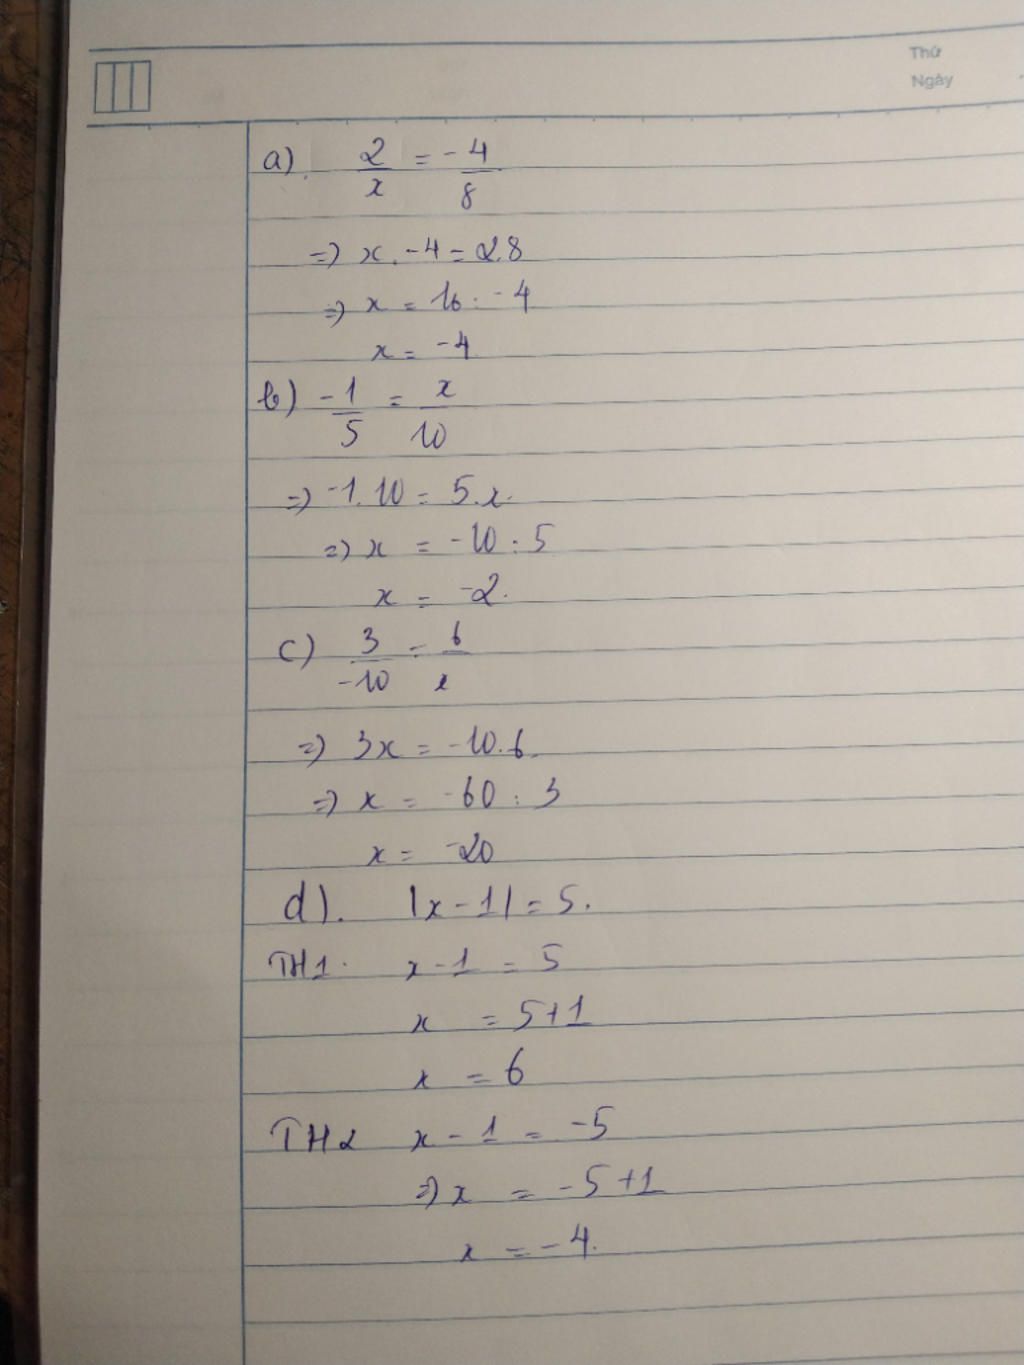 Thứ
Ngày
a) 2/x = -4/8
=) x. -4 = 2.8
=) x = 16 : -4
x = -4
b) -1/5 = x/10
=) -1.10 = 5.x.
=) x = -10 : 5
x = -2.
c) 3/-10 = 6/x
=) 3x = -10.6.
=) x = -60 : 3
x = -20
d). |x - 1| = 5.
TH1. x - 1 = 5
x = 5+1
x = 6
TH2 x - 1 = -5
=) x = -5 +1
x = -4.